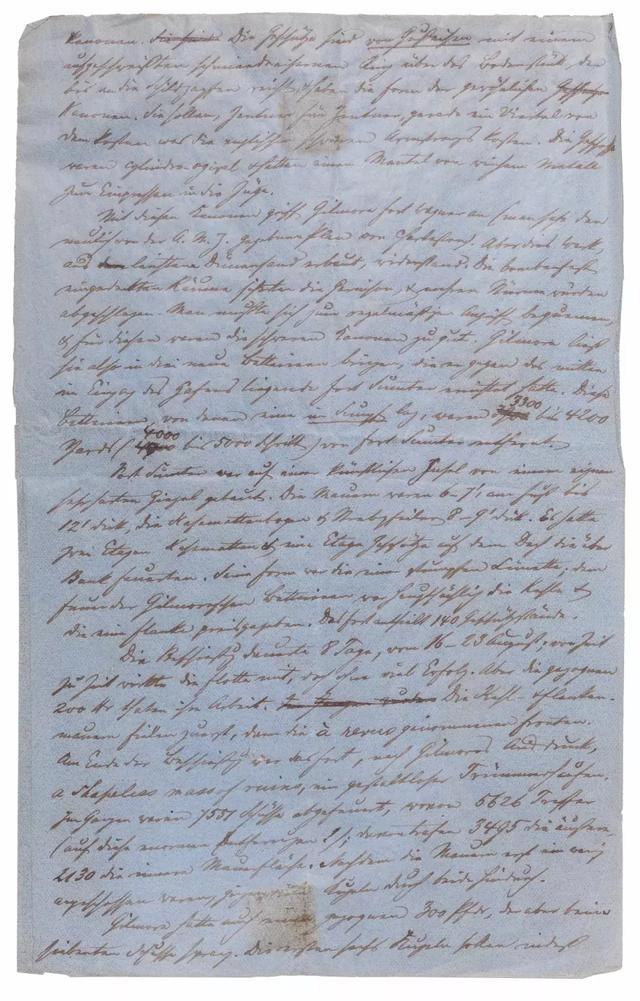 Kanonen. Die Geschütze sind von Gußeisen mit einem
aufgeschweißten schmiedeeisernen Ring über das Bodenstück, der
bis an die Schildzapfen reicht, haben die Form der gewöhnlichen
Kanonen. Sie sollen, Zentner für Zentner, gerade ein Viertel von
dem kosten was die englischen schweren Armstrongs kosten. Die Geschosse
waren cylindro-ogival & hatten einen Mantel von weichem Metall
zum Einpressen in die Züge.
Mit diesen Kanonen griff Gilmore Fort Wagner an (man sehe den
neulich von der A. M. Z. gegebenen Plan von Charleston). Aber das Werk,
aus lauterem Dünensand erbaut, widerstand; die bombenfest
eingedeckten Räume schützten die Garnison, & mehre Stürme wurden
abgeschlagen. Man mußte sich zum regelmäßigen Angriff bequemen,
& für diesen waren die schweren Kanonen zu gut. Gilmore ließ
sie also in drei neue Batterien bringen, die er gegen das mitten
im Eingang des Hafens liegende Fort Sumter errichtet hatte. Diese
Batterien, von denen eine im Sumpf lag, waren 3300 bis 4200
Yards (4000 bis 5000 Schritt) von Fort Sumter entfernt.
Fort Sumter war auf einer künstlichen Insel von einem eignen
sehr harten Ziegel gebaut. Die Mauern waren 6-7', am Fuß bis
12' dick, die Kasemattenbogen & Strebepfeiler 8-9' dick. Es hatte
zwei Etagen Kasematten & eine Etage Geschütze auf dem Dach die über
Bank feuerten. Seine Form war die einer stumpfen Lünette; dem
Feuer der Gilmoreschen Batterien war hauptsächlich die Kehle &
die eine Flanke preisgegeben. Das Fort enthielt 140 Geschützstände.
Die Beschießung dauerte 8 Tage, vom 16-23 August; von Zeit
zu Zeit wirkte die Flotte mit, doch ohne viel Erfolg. Aber die gezogenen
200 Pfdr thaten ihre Arbeit. Die Kehl- & Flanken-
mauern fielen zuerst, dann die à revers genommenen Fronten.
Am Ende der Beschießung war das Fort, nach Gilmores Ausdruck,
a shapeless mass of ruins, ein gestaltloser Trümmerhaufen.
Im Ganzen waren 7551 Schüsse abgefeuert, wovon 5626 Treffer
(auf diese enormen Entfernungen!); davon trafen 3495 die äußere,
2130 die innere Mauerfläche. Nachdem die Mauern erst ein wenig
angeschossen waren, gingen die Kugeln durch beide hindurch.
Gilmore hatte auch einen gezognen 300 Pfdr, der aber beim
siebenten Schusse sprang. Die ersten sechs Kugeln sollen indeß